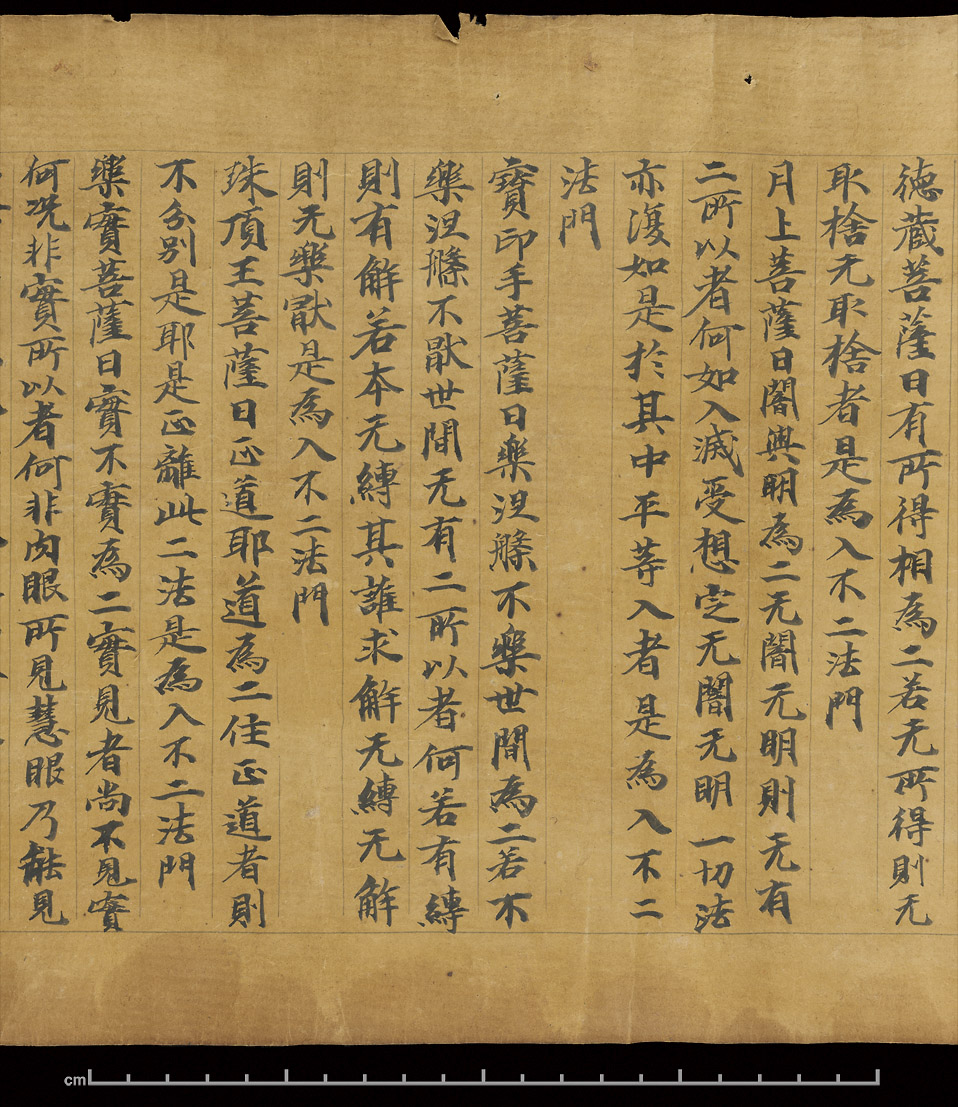 德藏菩薩曰有所得相為二若无所得則无
取捨无取捨者是為入不二法門
月上菩薩曰闇與明為二无闇无明則无有
二所以者何如入滅受想定无闇无明一切法
亦復如是於其中平等入者是為入不二
法門
寶印手菩薩曰樂涅槃不樂世間為二若不
樂涅槃不猒世間无有二所以者何若有縛
則有解若本无縛其誰求解无縛无解
則无樂猒是為入不二法門
珠頂王菩薩曰正道耶道為二住正道者則
不分別是耶是正離此二法是為入不二法門
樂實菩薩曰實不實為二實見者尚不見實
何況非實所以者何非肉眼所見慧眼乃能見
cm